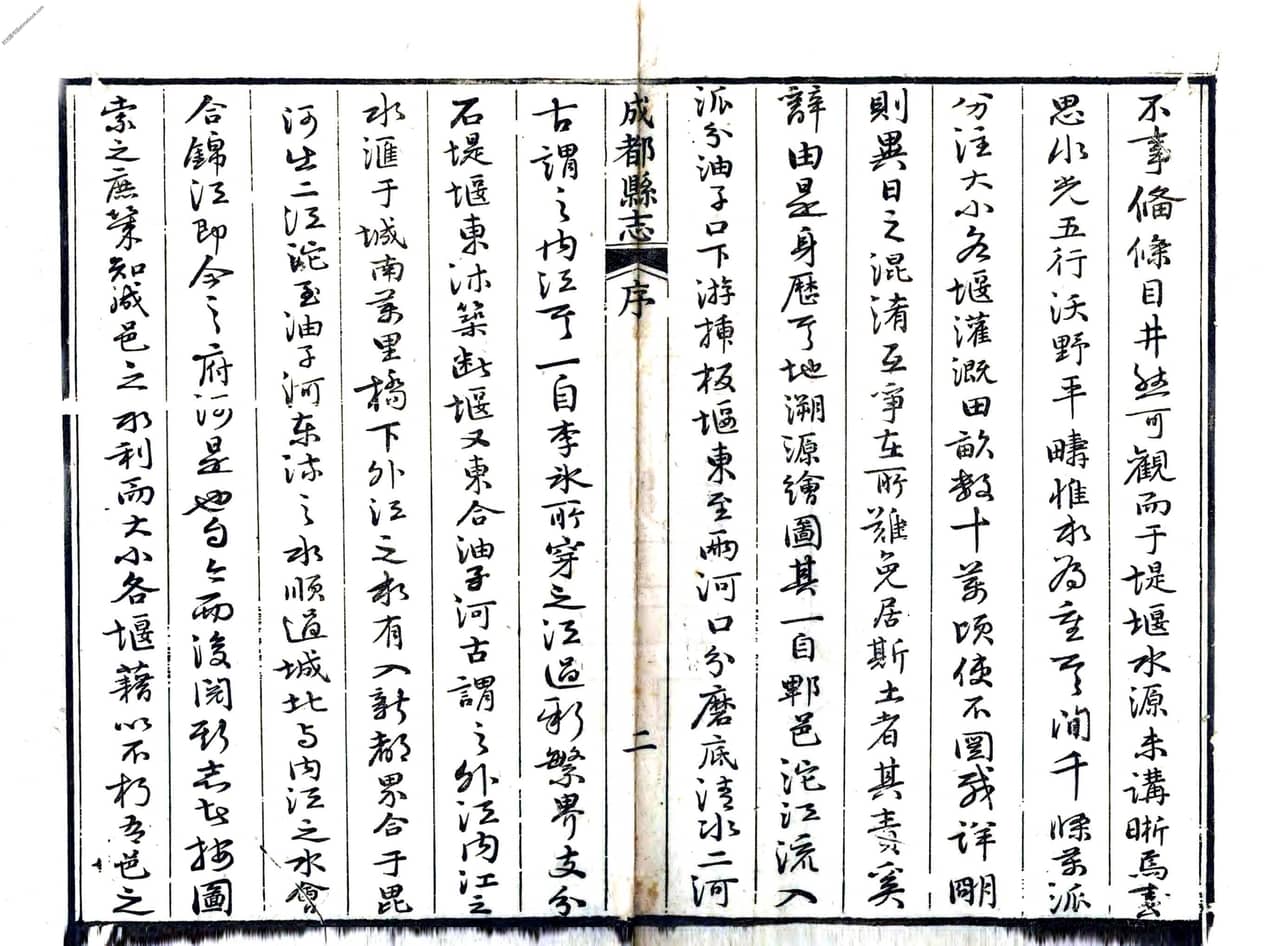 不事脩條目井然可觀而于堤堰水源未講晰焉書
思水光五行沃野平疇惟水為重至澗千條萬派
分注大小各堰灌溉田畝數十萬頃使不圖載詳明
則異日之混淆互爭在所難免居斯土者其責奚
辭由是身歷其地溯源繪圖其一自郫邑沱江流入
派分油子口下游揷板堰東至兩河口分磨底清水二河
成都縣志 序 二
古謂之内江其一自李氷所穿之江過新繁界支分
石堤堰東流築斷堰又東合油子河古謂之外江内江之
水滙于城南萬里橋下外江之水有入新都界合于毘
河出二江沱至油子河东流之水順過城北与内江之水會
合錦江即今之府河是也自今而後閱斯志者按圖
索之庶幾知成邑之水利而大小各堰藉以不朽吾邑之